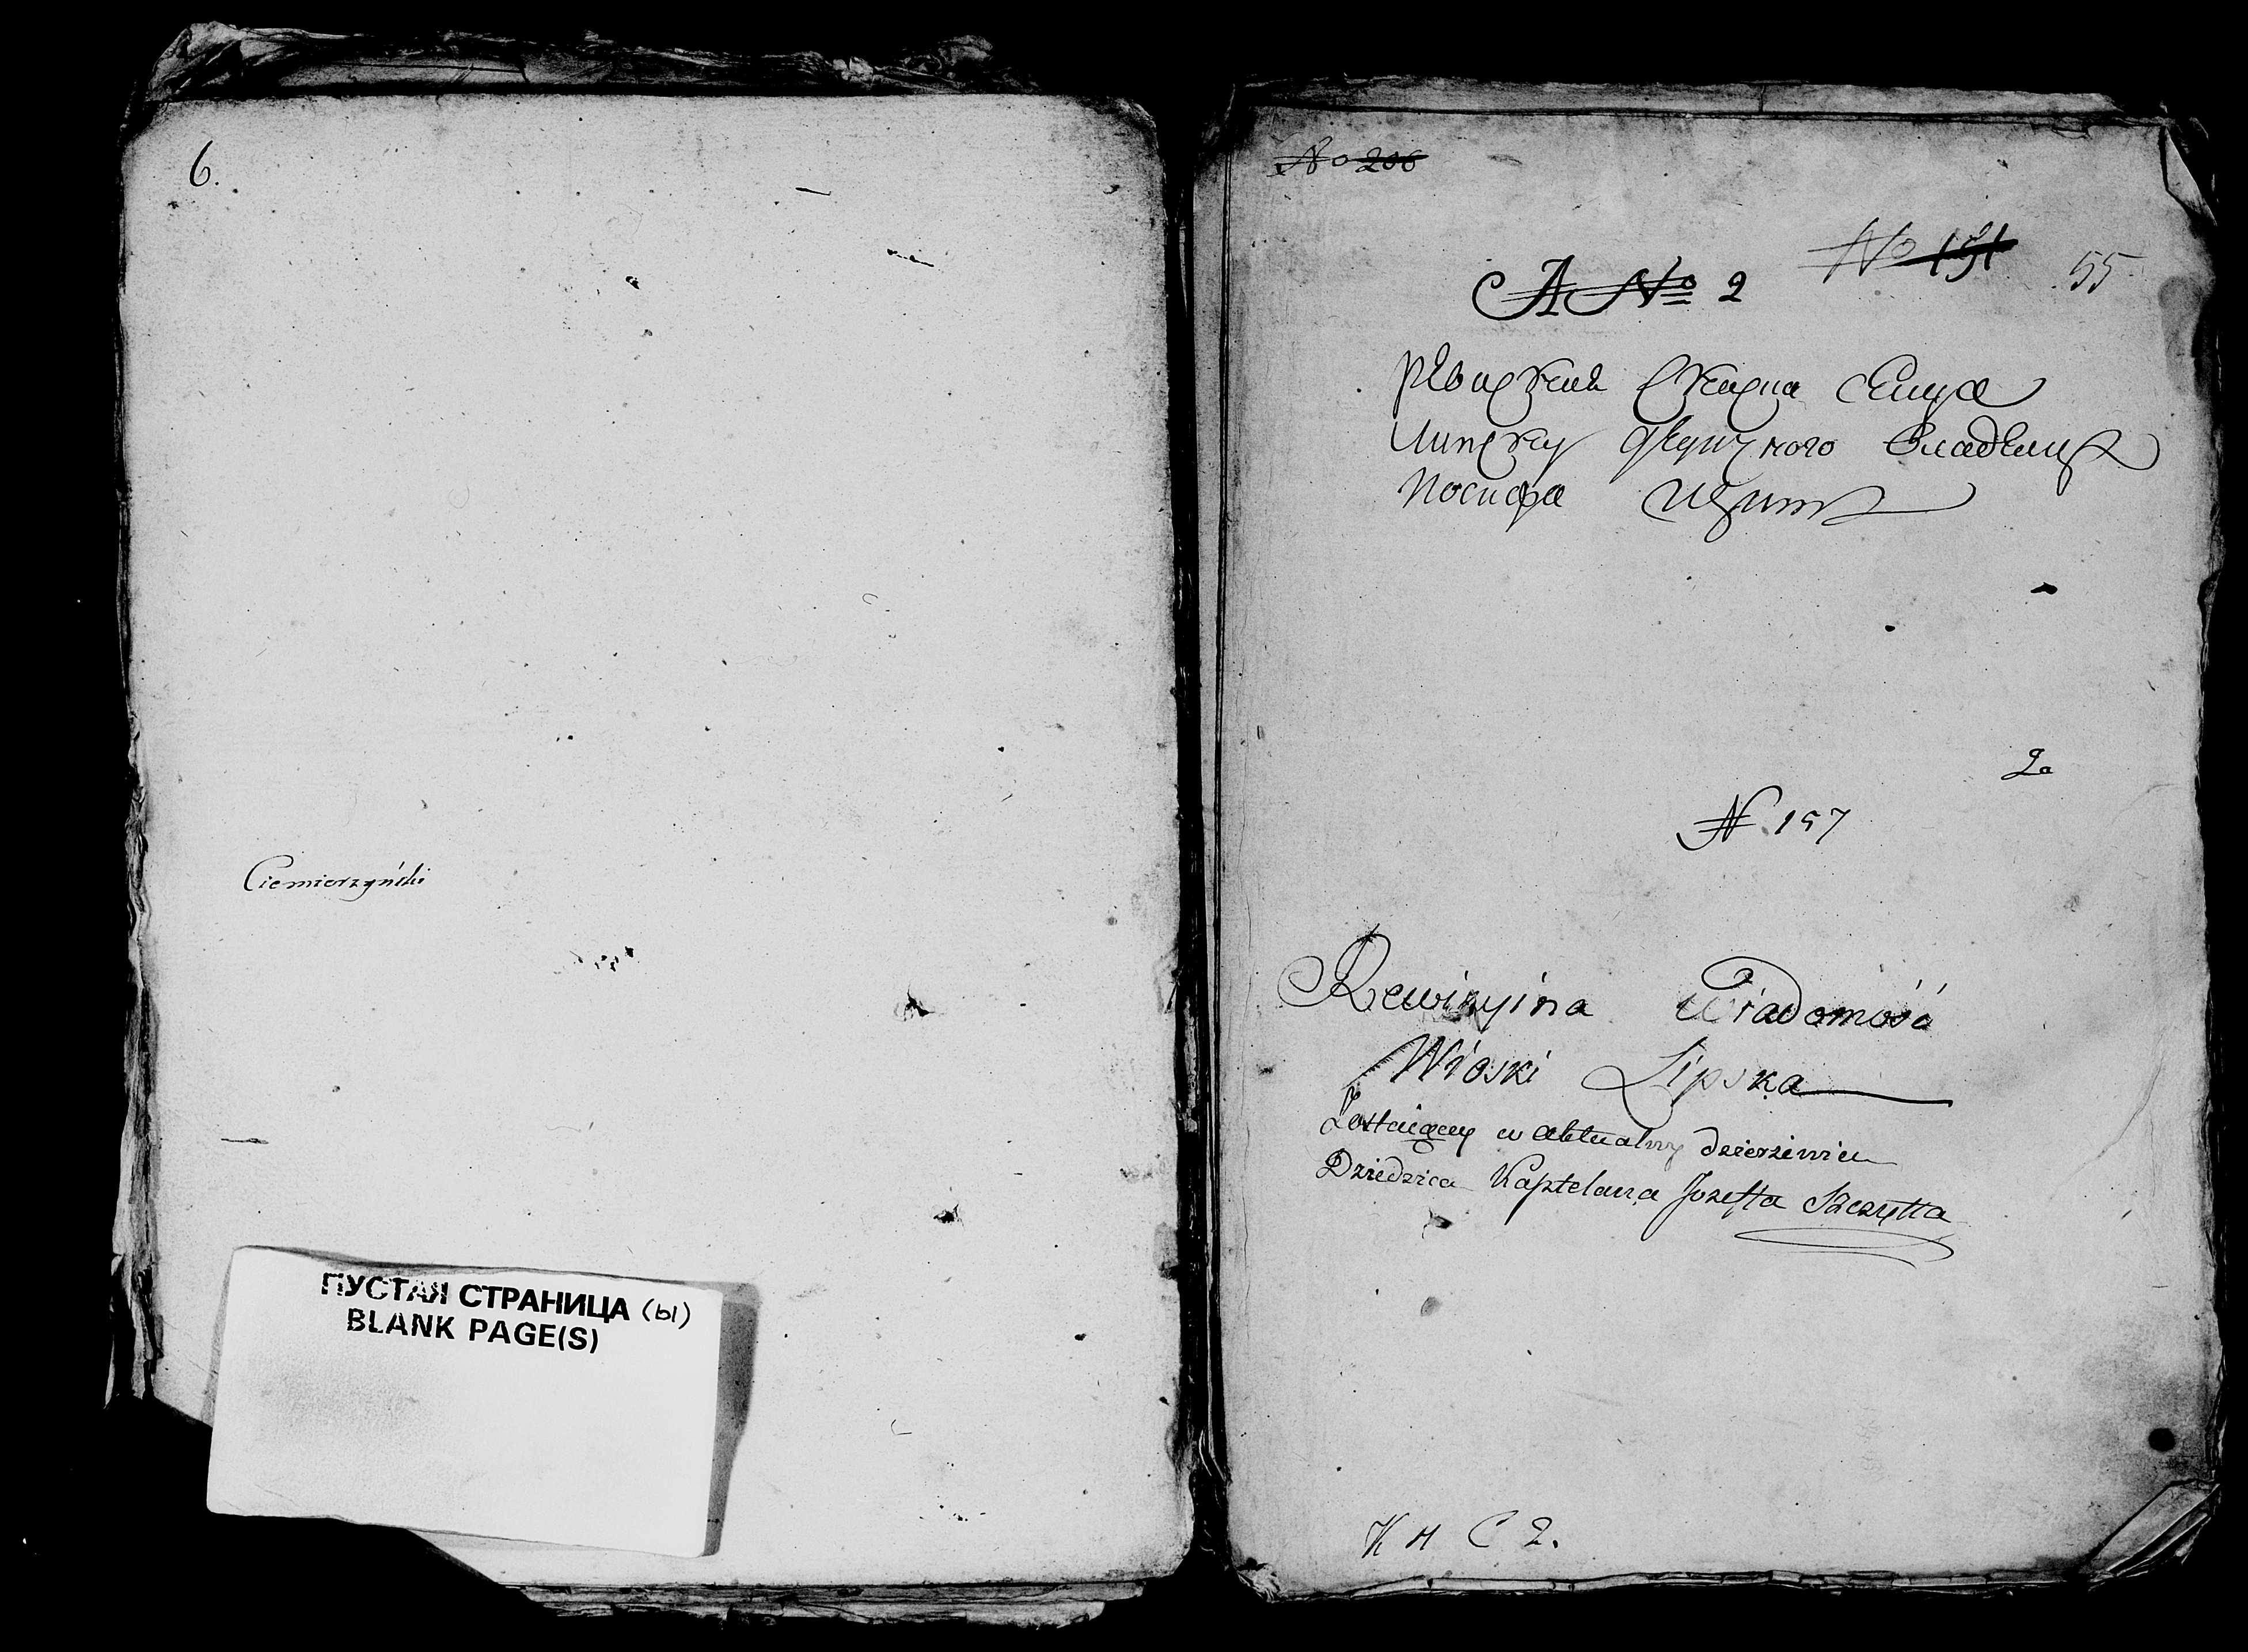 6.
Ciemierzyński
ПУСТАЯ СТРАНИЦА (ы)
BLANK PAGE(S)
No 206
No 191
55
A No 2
ревизская скаска селца
Липску фундучного владелца
Иосифа Щита
2a
N. 157
Rewizyina Wiadomość
Wioski Lipska
Zostaiącey w aktualny dzierżeniu
Dziedzica Kaptelana Jozeffa Szczytta
К Н С 2.